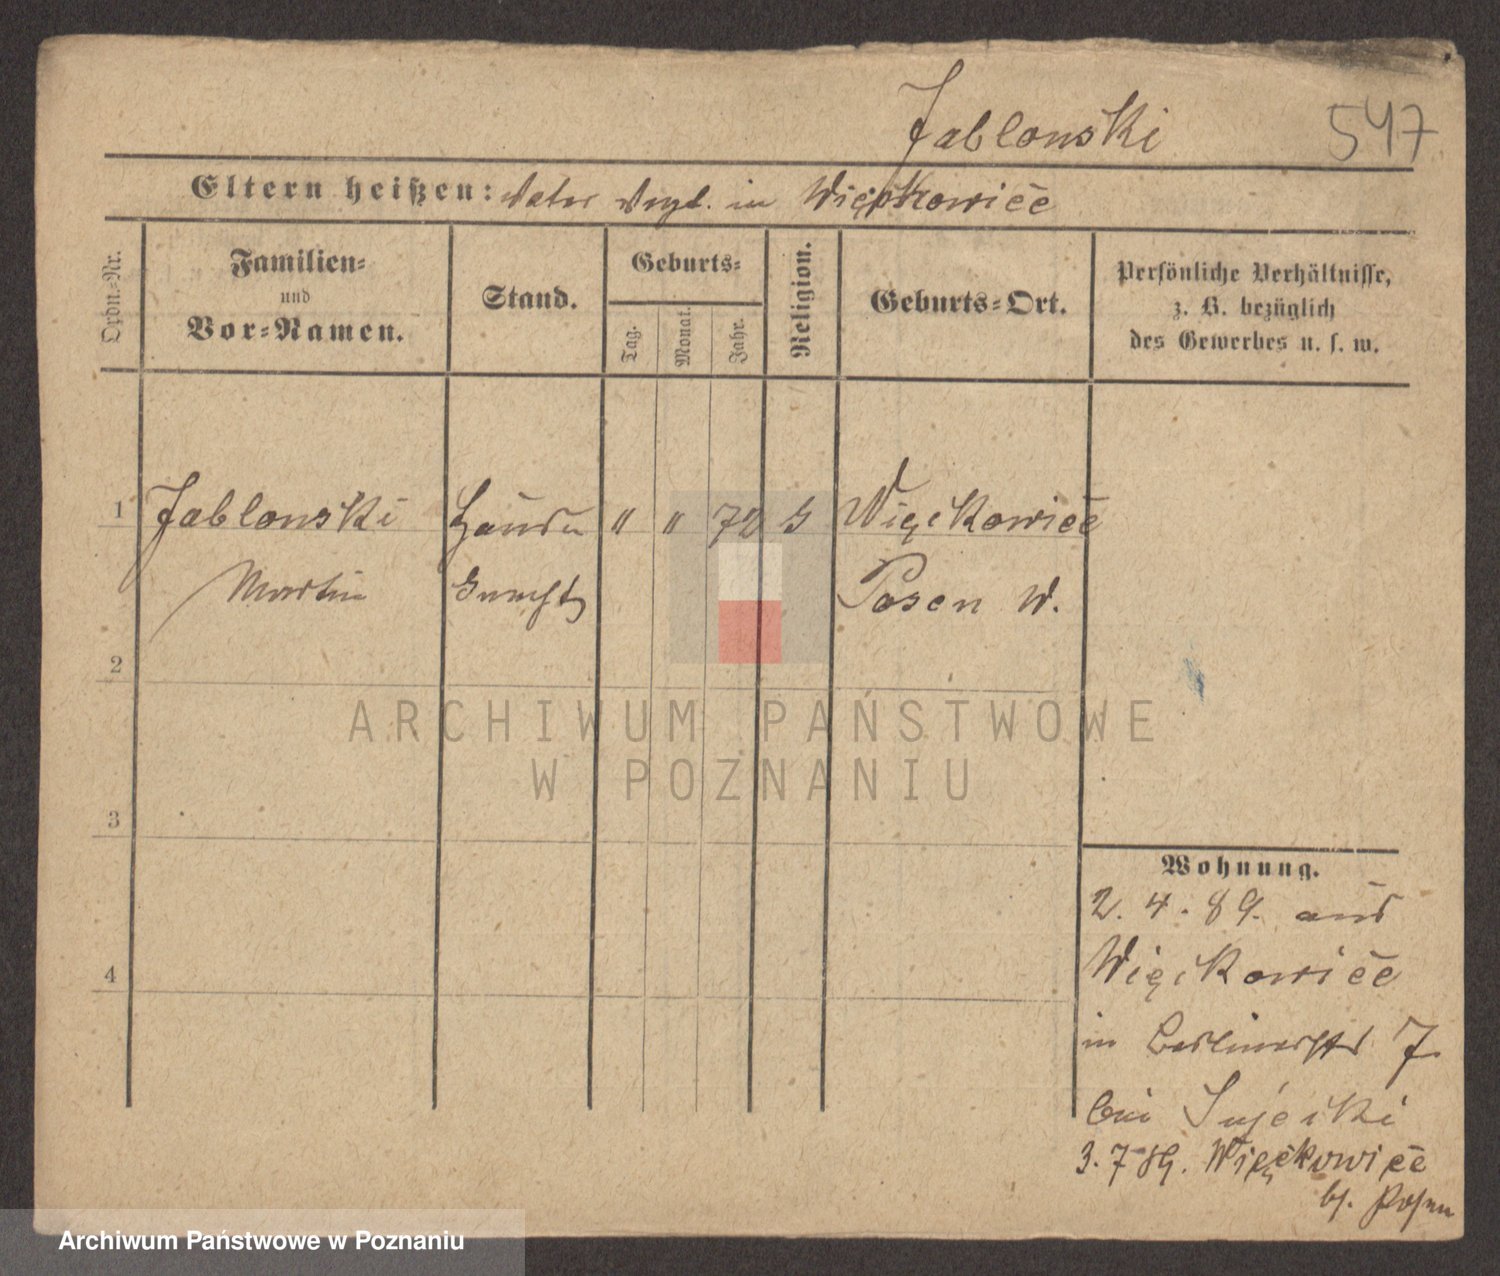 Jablonski 547
Eltern heißen: Vater Vogt. in Więckowice
Ordn.-Nr.
Familien-
und
Vor-Namen.
Stand.
Geburts-
Tag.
Monat.
Jahr.
Religion.
Geburts-Ort.
Persönliche Verhältnisse,
z. B. bezüglich
des Gewerbes u. s. w.
1 Jablonski " " 72 Więckowice
Martin Posen W.
2
3
4
Wohnung.
2. 4. 89. aus
Więckowice
in Berlinerstr 7
bei
3. 7 89. Więckowice
b/. Posen
ARCHIWUM PAŃSTWOWE
W POZNANIU
Archiwum Państwowe w Poznaniu